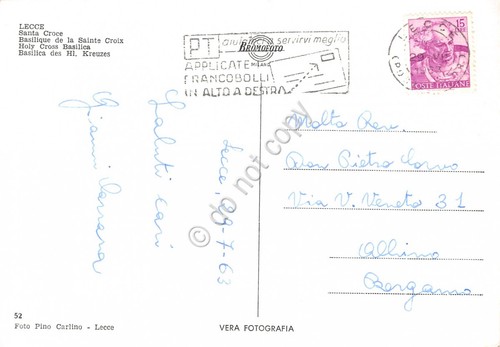 LECCE
Santa Croce
Basilique de la Sainte Croix
Holy Cross Basilica
Basilica des Hl. Kreuzes
PT
aiutateci a servirvi meglio
APPLICATE I
FRANCOBOLLI
IN ALTO A DESTRA
BROMOFOTO
MILANO
LECCE
15
POSTE ITALIANE
Lecce, 29-7-63
Saluti cari
Gianni
Molto Rev.
Don Pietro
Via V. Veneto 31
Albino
Bergamo
do not copy
52
Foto Pino Carlino - Lecce
VERA FOTOGRAFIA